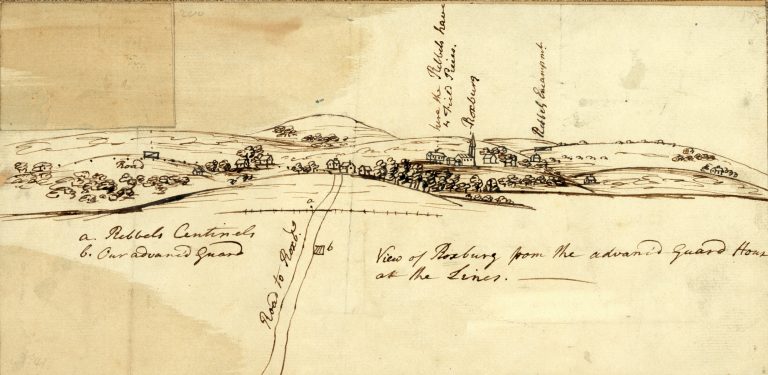 here the Rebbels have
4 Field Pieces.
Roxburg
Rebbels Encampmt.
Road
a
a. Rebbels Centinels
b. Our advanced Guard
b
Road to Roxbg
View of Roxburg from the advanced Guard House
at the Lines.